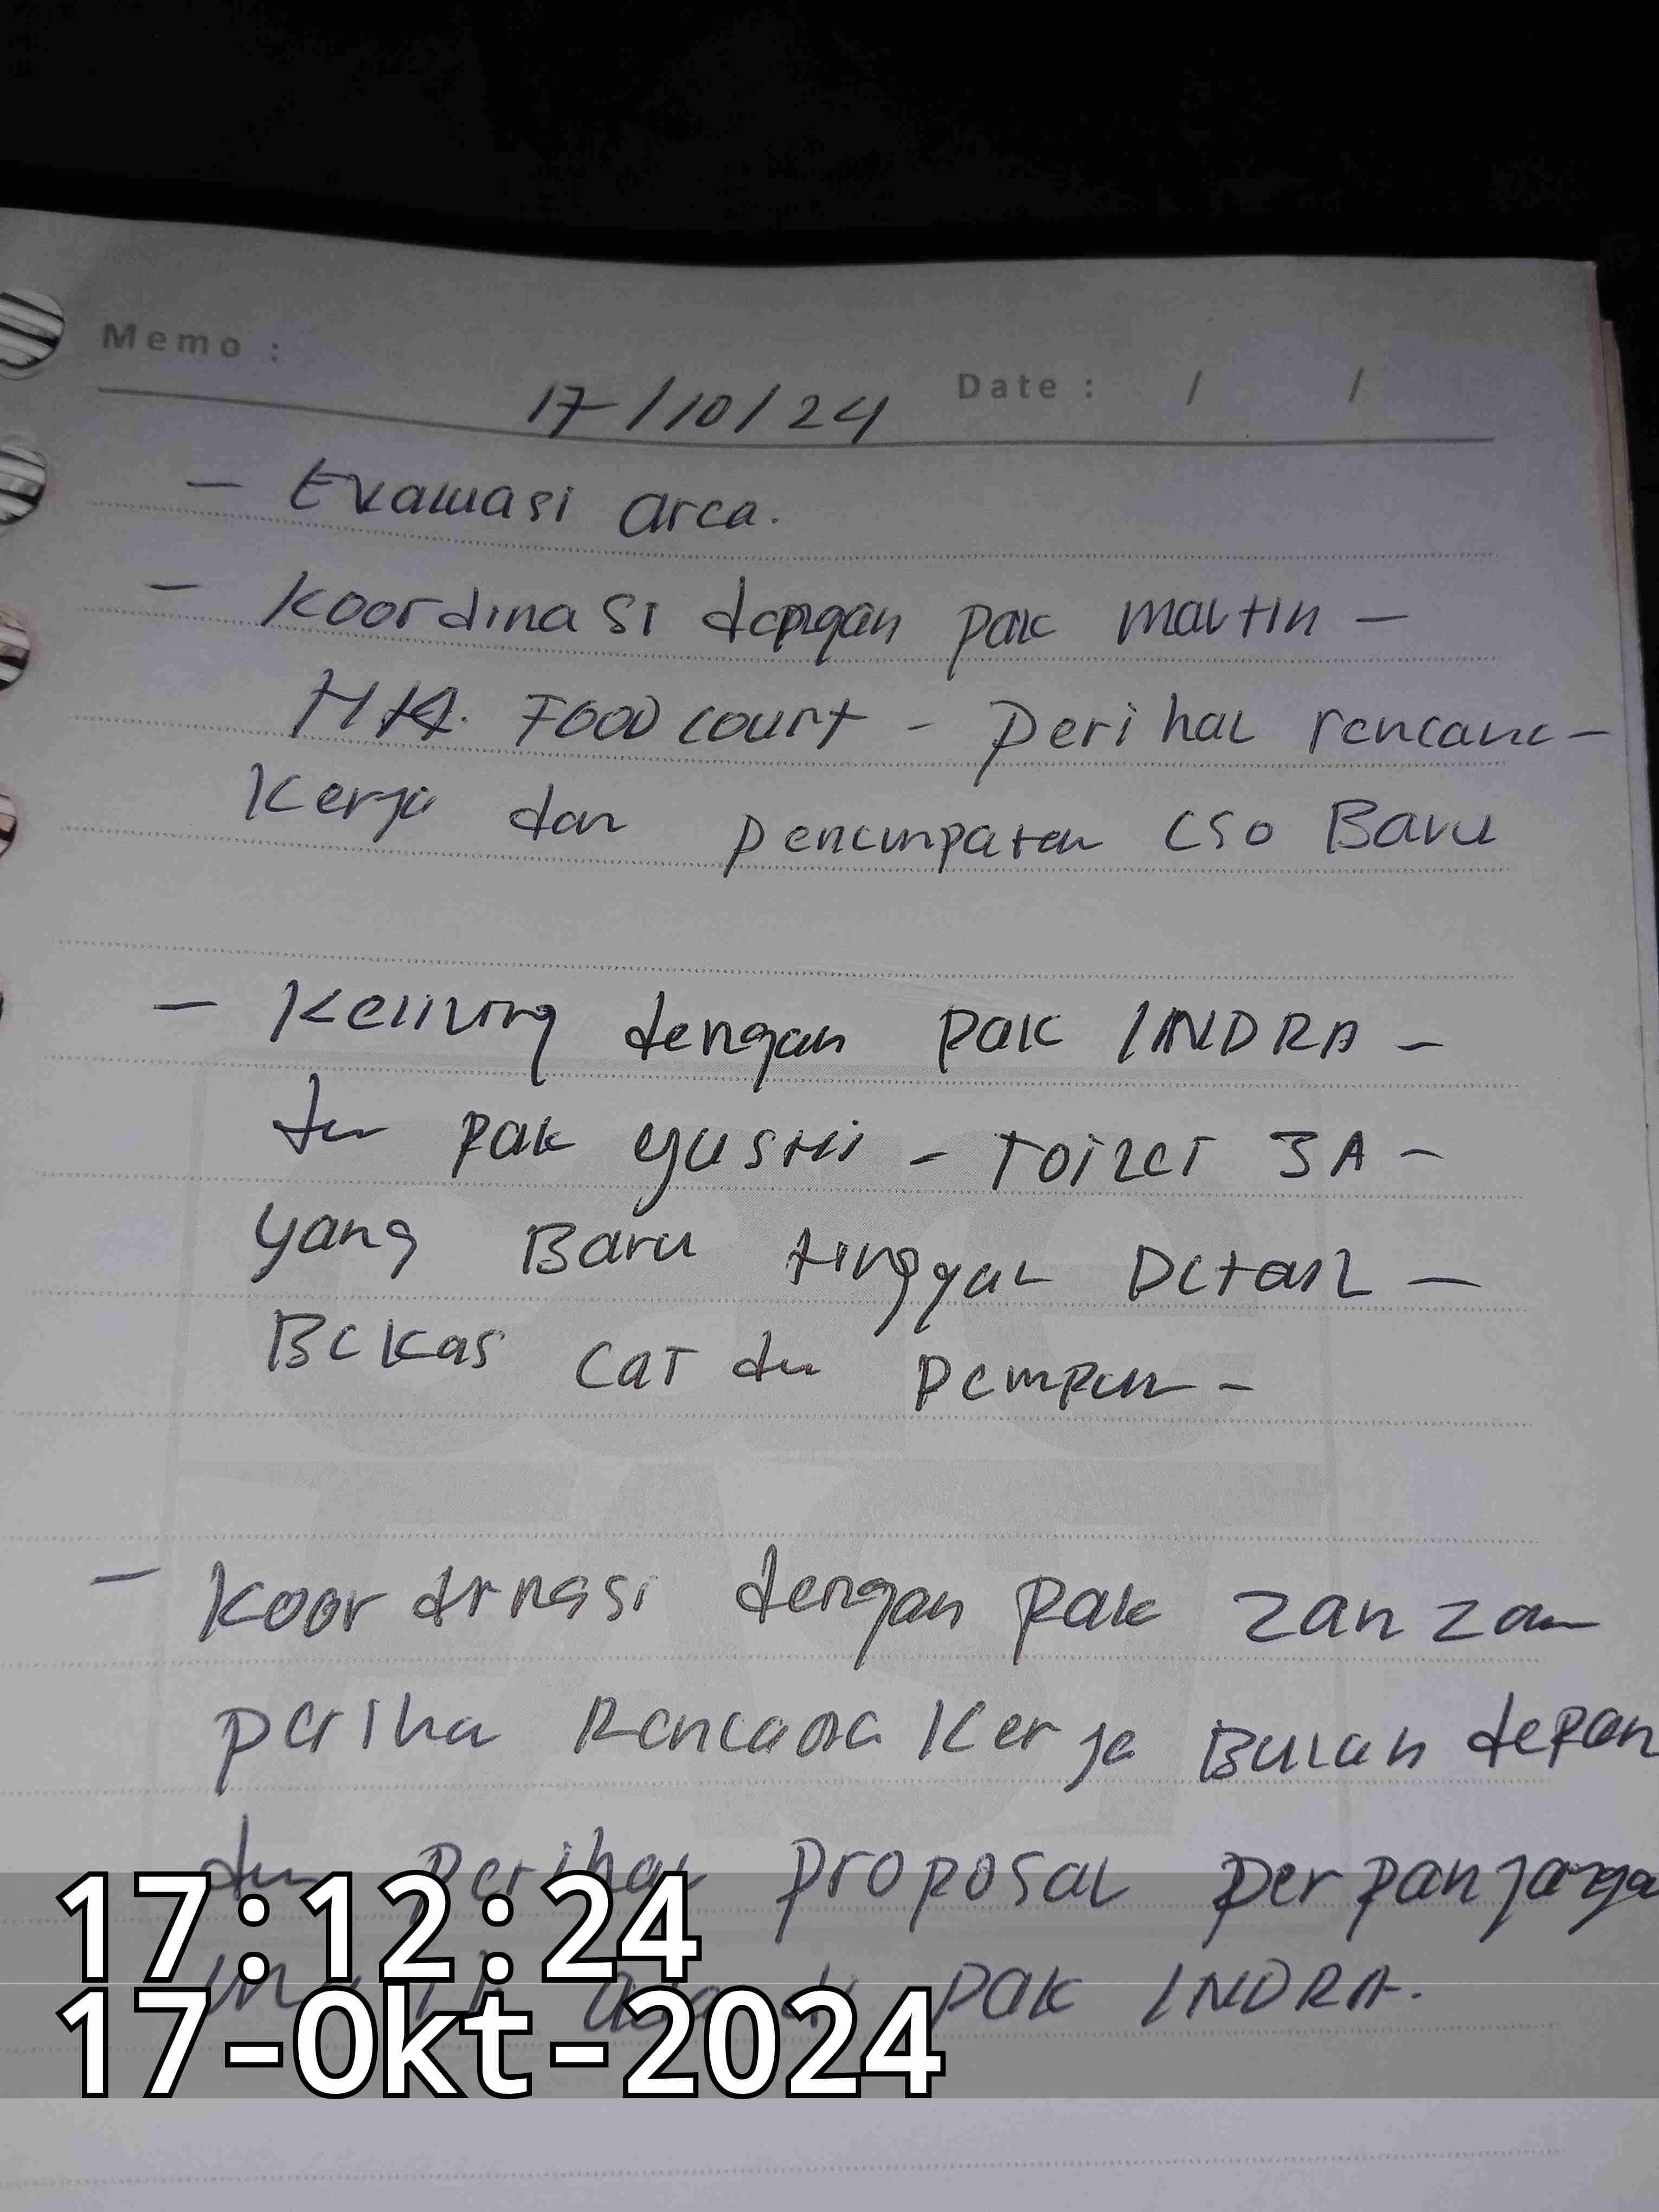 Memo :
Date : / /
17/10/24
- Evaluasi area.
- Koordinasi dengan pak martin -
HK. FOOD court - perihal rencana -
Kerja dan penempatan CSO Baru
- Keliling dengan pak INDRA -
dan pak yusni - Toilet 3A -
yang Baru tinggal Detail -
Bekas cat dan
- Koordinasi dengan pak zanzam
periha Rencana Kerja Bulan depan
dan perihal proposal perpanjanga
pak INDRA.
17:12:24
17-Okt-2024